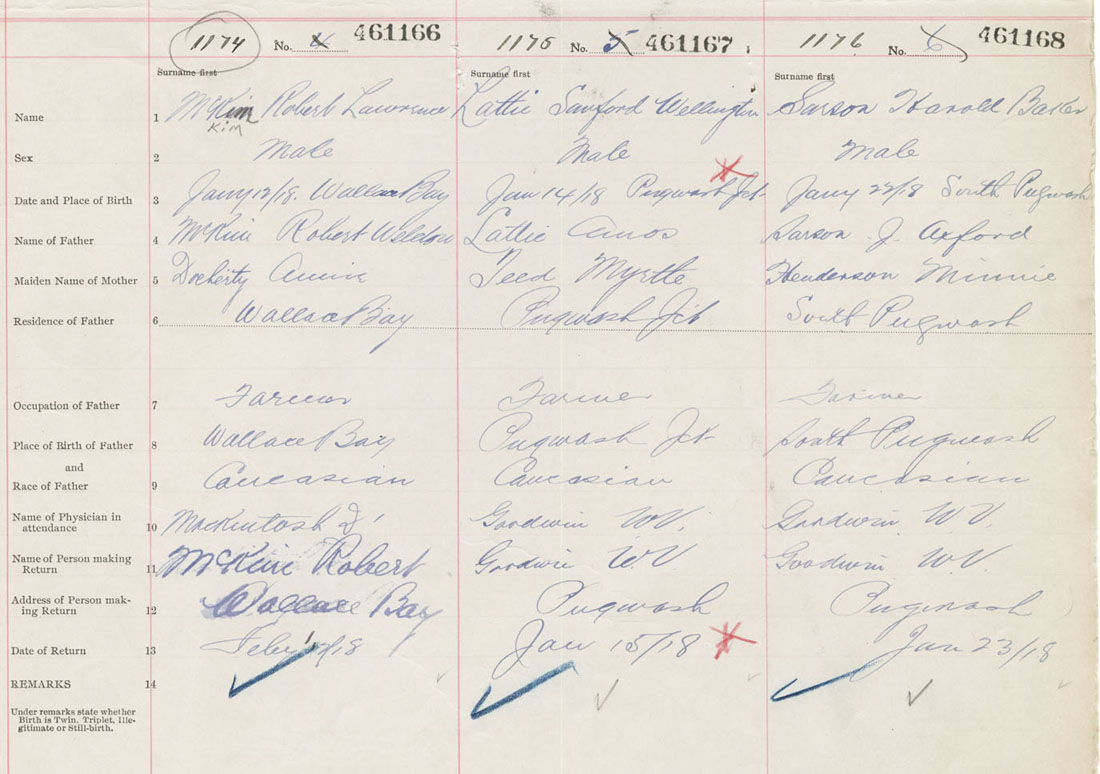 1174 No. 4 461166 1175 No. 5 461167 1176 No. 6 461168
Surname first Surname first Surname first
Name 1 McKim Robert Lawrence Lattie Sanford Wellington Sarson Harold Baxter
Kim
Sex 2 Male Male Male
Date and Place of Birth 3 Jany 12/18. Wallace Bay Jan 14/18 Pugwash Jct Jany 22/18 South Pugwash
Name of Father 4 McKim Robert Weldon Lattie Amos Sarson J. Axford
Maiden Name of Mother 5 Docherty Annie Teed Myrtle Henderson Minnie
Residence of Father 6 Wallace Bay Pugwash Jct South Pugwash
Occupation of Father 7 Farmer Farmer Farmer
Place of Birth of Father 8 Wallace Bay Pugwash Jct South Pugwash
and
Race of Father 9 Caucasian Caucasian Caucasian
Name of Physician in
attendance 10 MacKintosh Dr Goodwin W.V. Goodwin W.V.
Name of Person making
Return 11 McKim Robert Goodwin W.V. Goodwin W.V.
Address of Person mak-
ing Return 12 Wallace Bay Pugwash Pugwash
Date of Return 13 Feby /18 Jan 15/18 Jan 23/18
REMARKS 14
Under remarks state whether
Birth is Twin, Triplet, Ille-
gitimate or Still-birth.